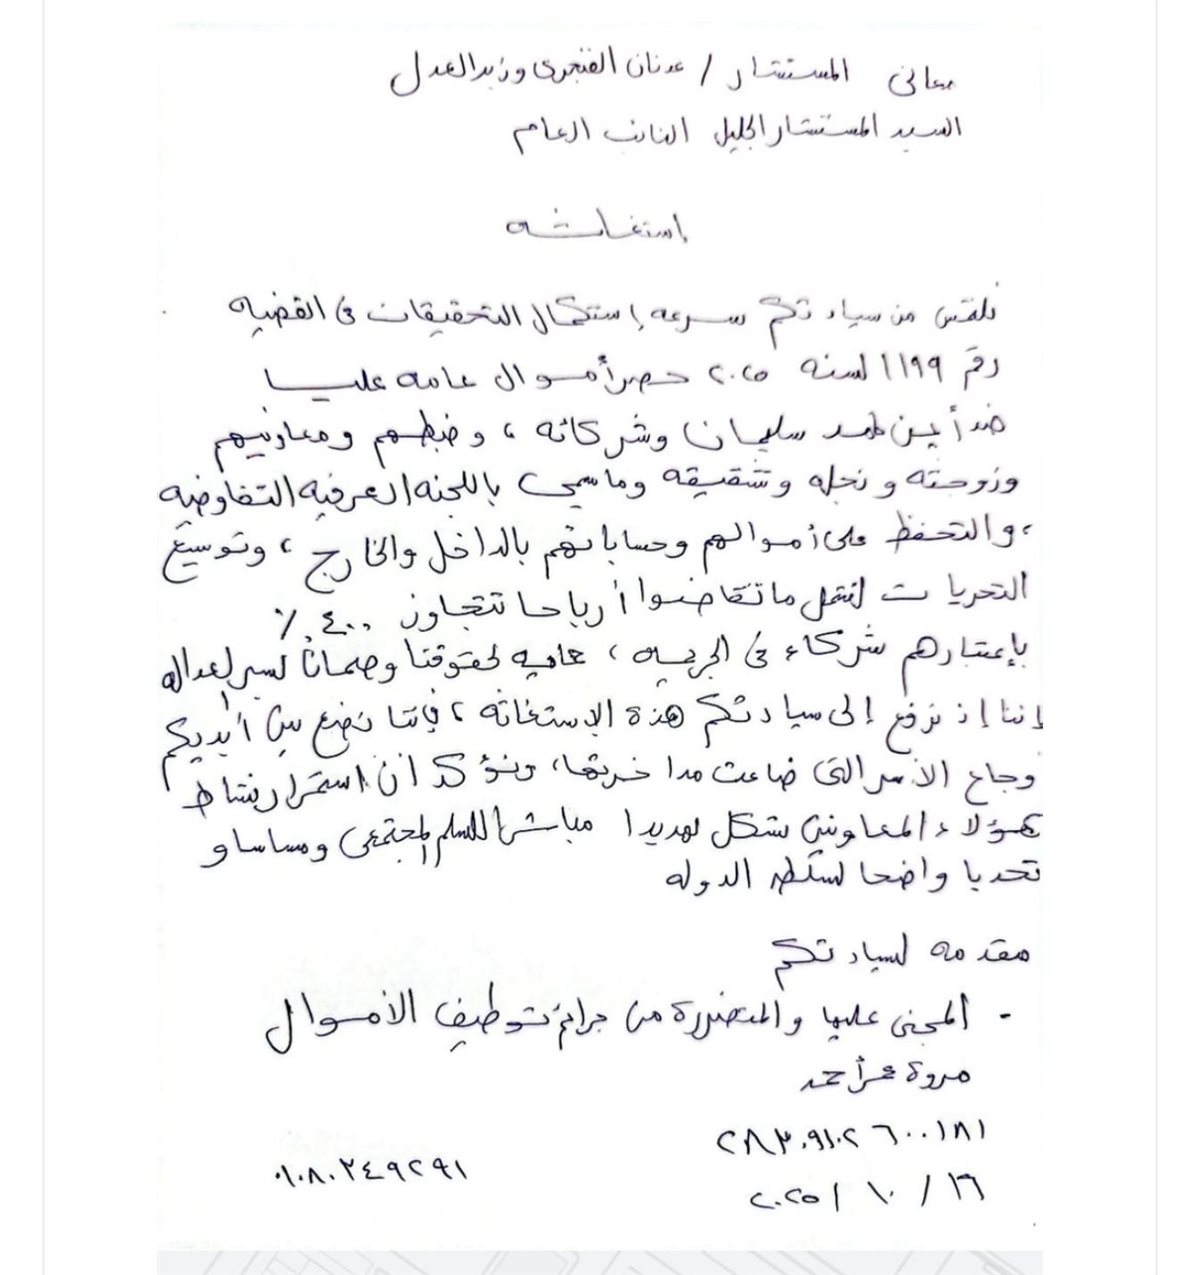 معالى المستشار / عدنان الفنجرى وزير العدل
السيد المستشار الجليل النائب العام
إستغاثه
نلتمس من سيادتكم سرعه إستكمال التحقيقات فى القضيه
رقم ١١٩٩ لسنه ٢٠٢٥ حصر أموال عامه عليا
ضد أيمن سليمان وشركائه ، وضبطهم ومعاونيهم
وزوجته ونجله وشقيقه وماسمى باللجنه العرفيه التفاوضيه
، والتحفظ على أموالهم وحساباتهم بالداخل والخارج ، وتوسيع
التحريات لتشمل ما تقاضوا أرباحا تتجاوز ٤٠٠ ٪
بإعتبارهم شركاء فى الجريمه ، حمايه لحقوقنا وضمانا لسير لعداله
إننا إذ نرفع إلى سيادتكم هذة الإستغاثه ، فإننا نضع بين أيديكم
وجاع الأسر التى ضاعت مدا خرتها ، ونؤكد أن استمرار نشاط
هؤلاء المعاونين يشكل تهديدا مباشرا للسلم المجتمعى ومساسا و
تحديا واضحا لسلطه الدوله
مقدمه لسيادتكم
- المجنى عليها والمتضررة من جرائم توظيف الأموال
مروة عمر أحمد
٢٨٣٠٩١٠٢٦٠٠١٨١
٠١٠٨٠٢٤٩٢٩١
١٦ / ١٠ / ٢٠٢٥